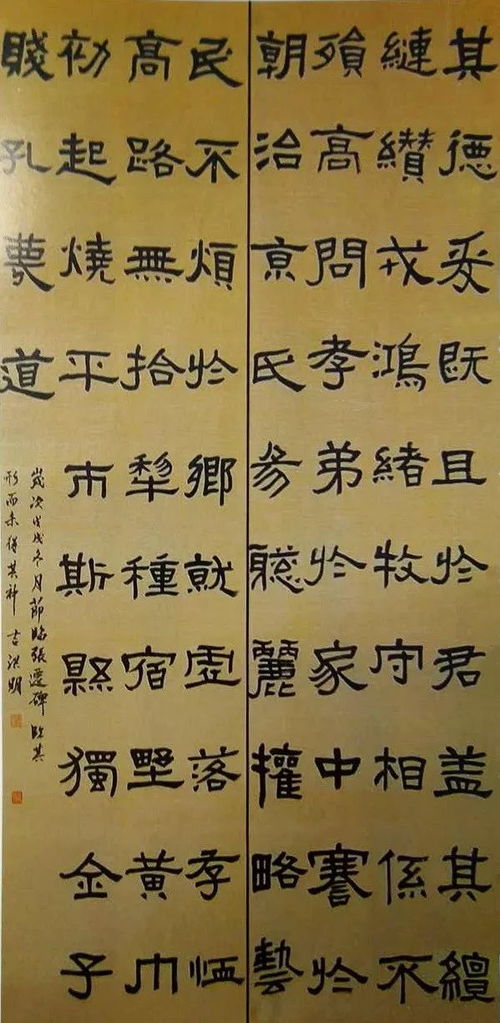 其德爰既且於君盖其繵
縺纘戎鴻緒牧守相係不
殞高問孝弟於家中謇於
朝治京氏易聦麗權略藝
民不煩於鄉就虛落存恤
高路無拾犁種宿野黃巾
初起燒平市斯縣獨金子
賤孔蔑道
歲次戊戌冬月節臨張遷碑 臨其
形而未得其神 吉洪明